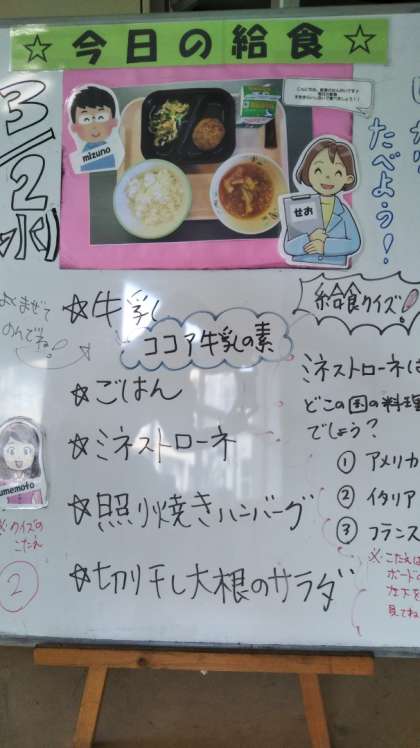 ☆今日の給食☆
3/2(水)
mizuno
せお
たべよう！
よくまぜて
のんでね！
☆牛乳
ココア牛乳の素
☆ごはん
☆ミネストローネ
☆照り焼きハンバーグ
☆切り干し大根のサラダ
給食クイズ！
ミネストローネは
どこの国の料理
でしょう？
① アメリカ
② イタリア
③ フランス
※こたえは
ボードの
左下を
見てね
umemoto
※クイズの
こたえ
②